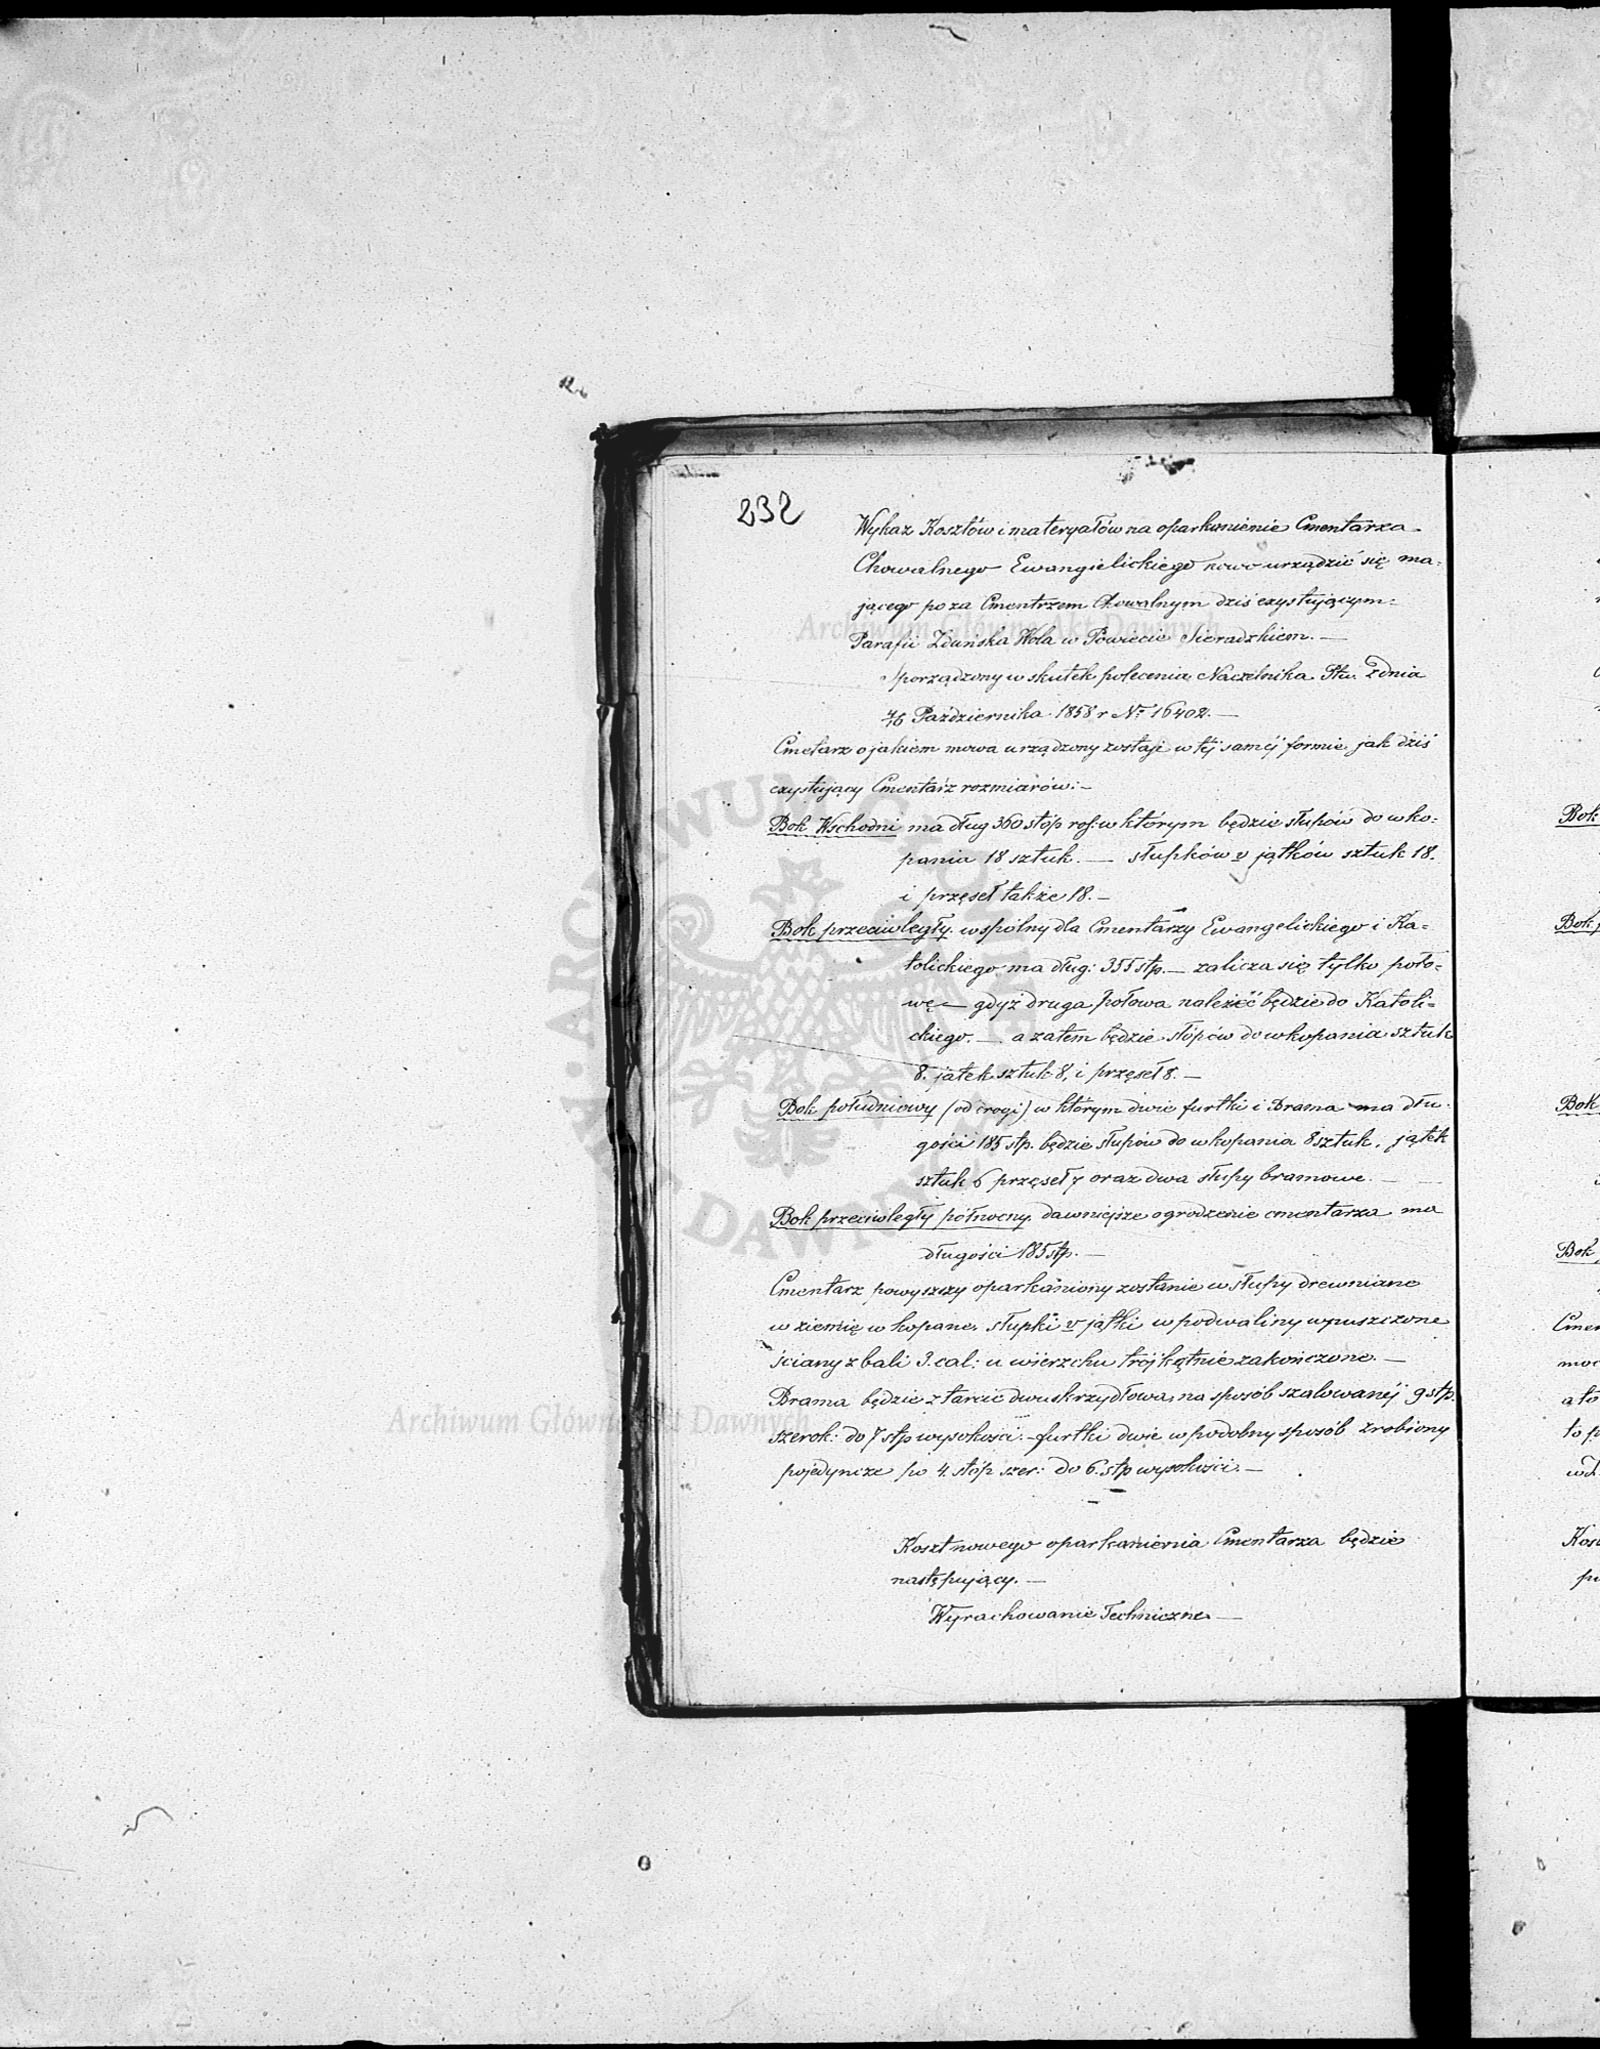 232
Wykaz Kosztów i materyałów na oparkanienie Cmentarza
Chowalnego Ewangielickiego nowo urządzić się ma=
jącego poza Cmentrzem Chowalnym dziś exystującym:
Parafii Zduńska Wola w Powiecie Sieradzkiem. —
Sporządzony w skutek polecenia Naczelnika Ptu. z dnia
Października 1858 r № 16402. —
Cmetarz o jakiem mowa urządzony zostaje w téj saméj formie jak dziś
exystujący Cmentarz rozmiarów: —
Bok Wschodni ma dług 360 stóp ros: w którym będzie słupów do wko=
pania 18 sztuk. — słupków v jątków sztuk 18.
i przęseł także 18. —
Bok przeciwległy. wspólny dla Cmentarzy Ewangelickiego i Ka=
tolickiego ma dług: 355 stp. — zalicza się tylko poło=
wę — gdyż druga połowa należeć będzie do Katoli=
ckiego. — a zatem będzie słópów do wkopania sztuk
8. jątek sztuk 8, i przęseł 8. —
Bok południowy (od drogi) w którym dwie furtki i Brama ma dłu
gości 185 stp. będzie słupów do wkopania 8 sztuk. jątek
sztuk 6 przęseł 7 oraz dwa słupy bramowe. —
Bok przeciwległy północny. dawniejsze ogrodzenie cmentarza ma
długości 185 stp. —
Cmentarz powyższy oparkaniony zostanie w słupy drewniane
w ziemię wkopane, słupki v jątki w podwaliny wpuszczone
ściany z bali 3. cal: u wierzchu trójkątnie zakończone. —
Brama będzie z tarcic dwuskrzydłowa na sposób szalowanéj 9 stp.
szerok: do 7 stp wysokości. — furtki dwie w podobny sposób zrobiony
pojedyncze po 4. stóp szer: do 6. stp wysokości. —
Koszt nowego oparkanienia Cmentarza będzie
następujący. —
Wyrachowanie Techniczne —
Archiwum Główne Akt Dawnych
Archiwum Główne Akt Dawnych
Bok
Bok
Bok
Bok